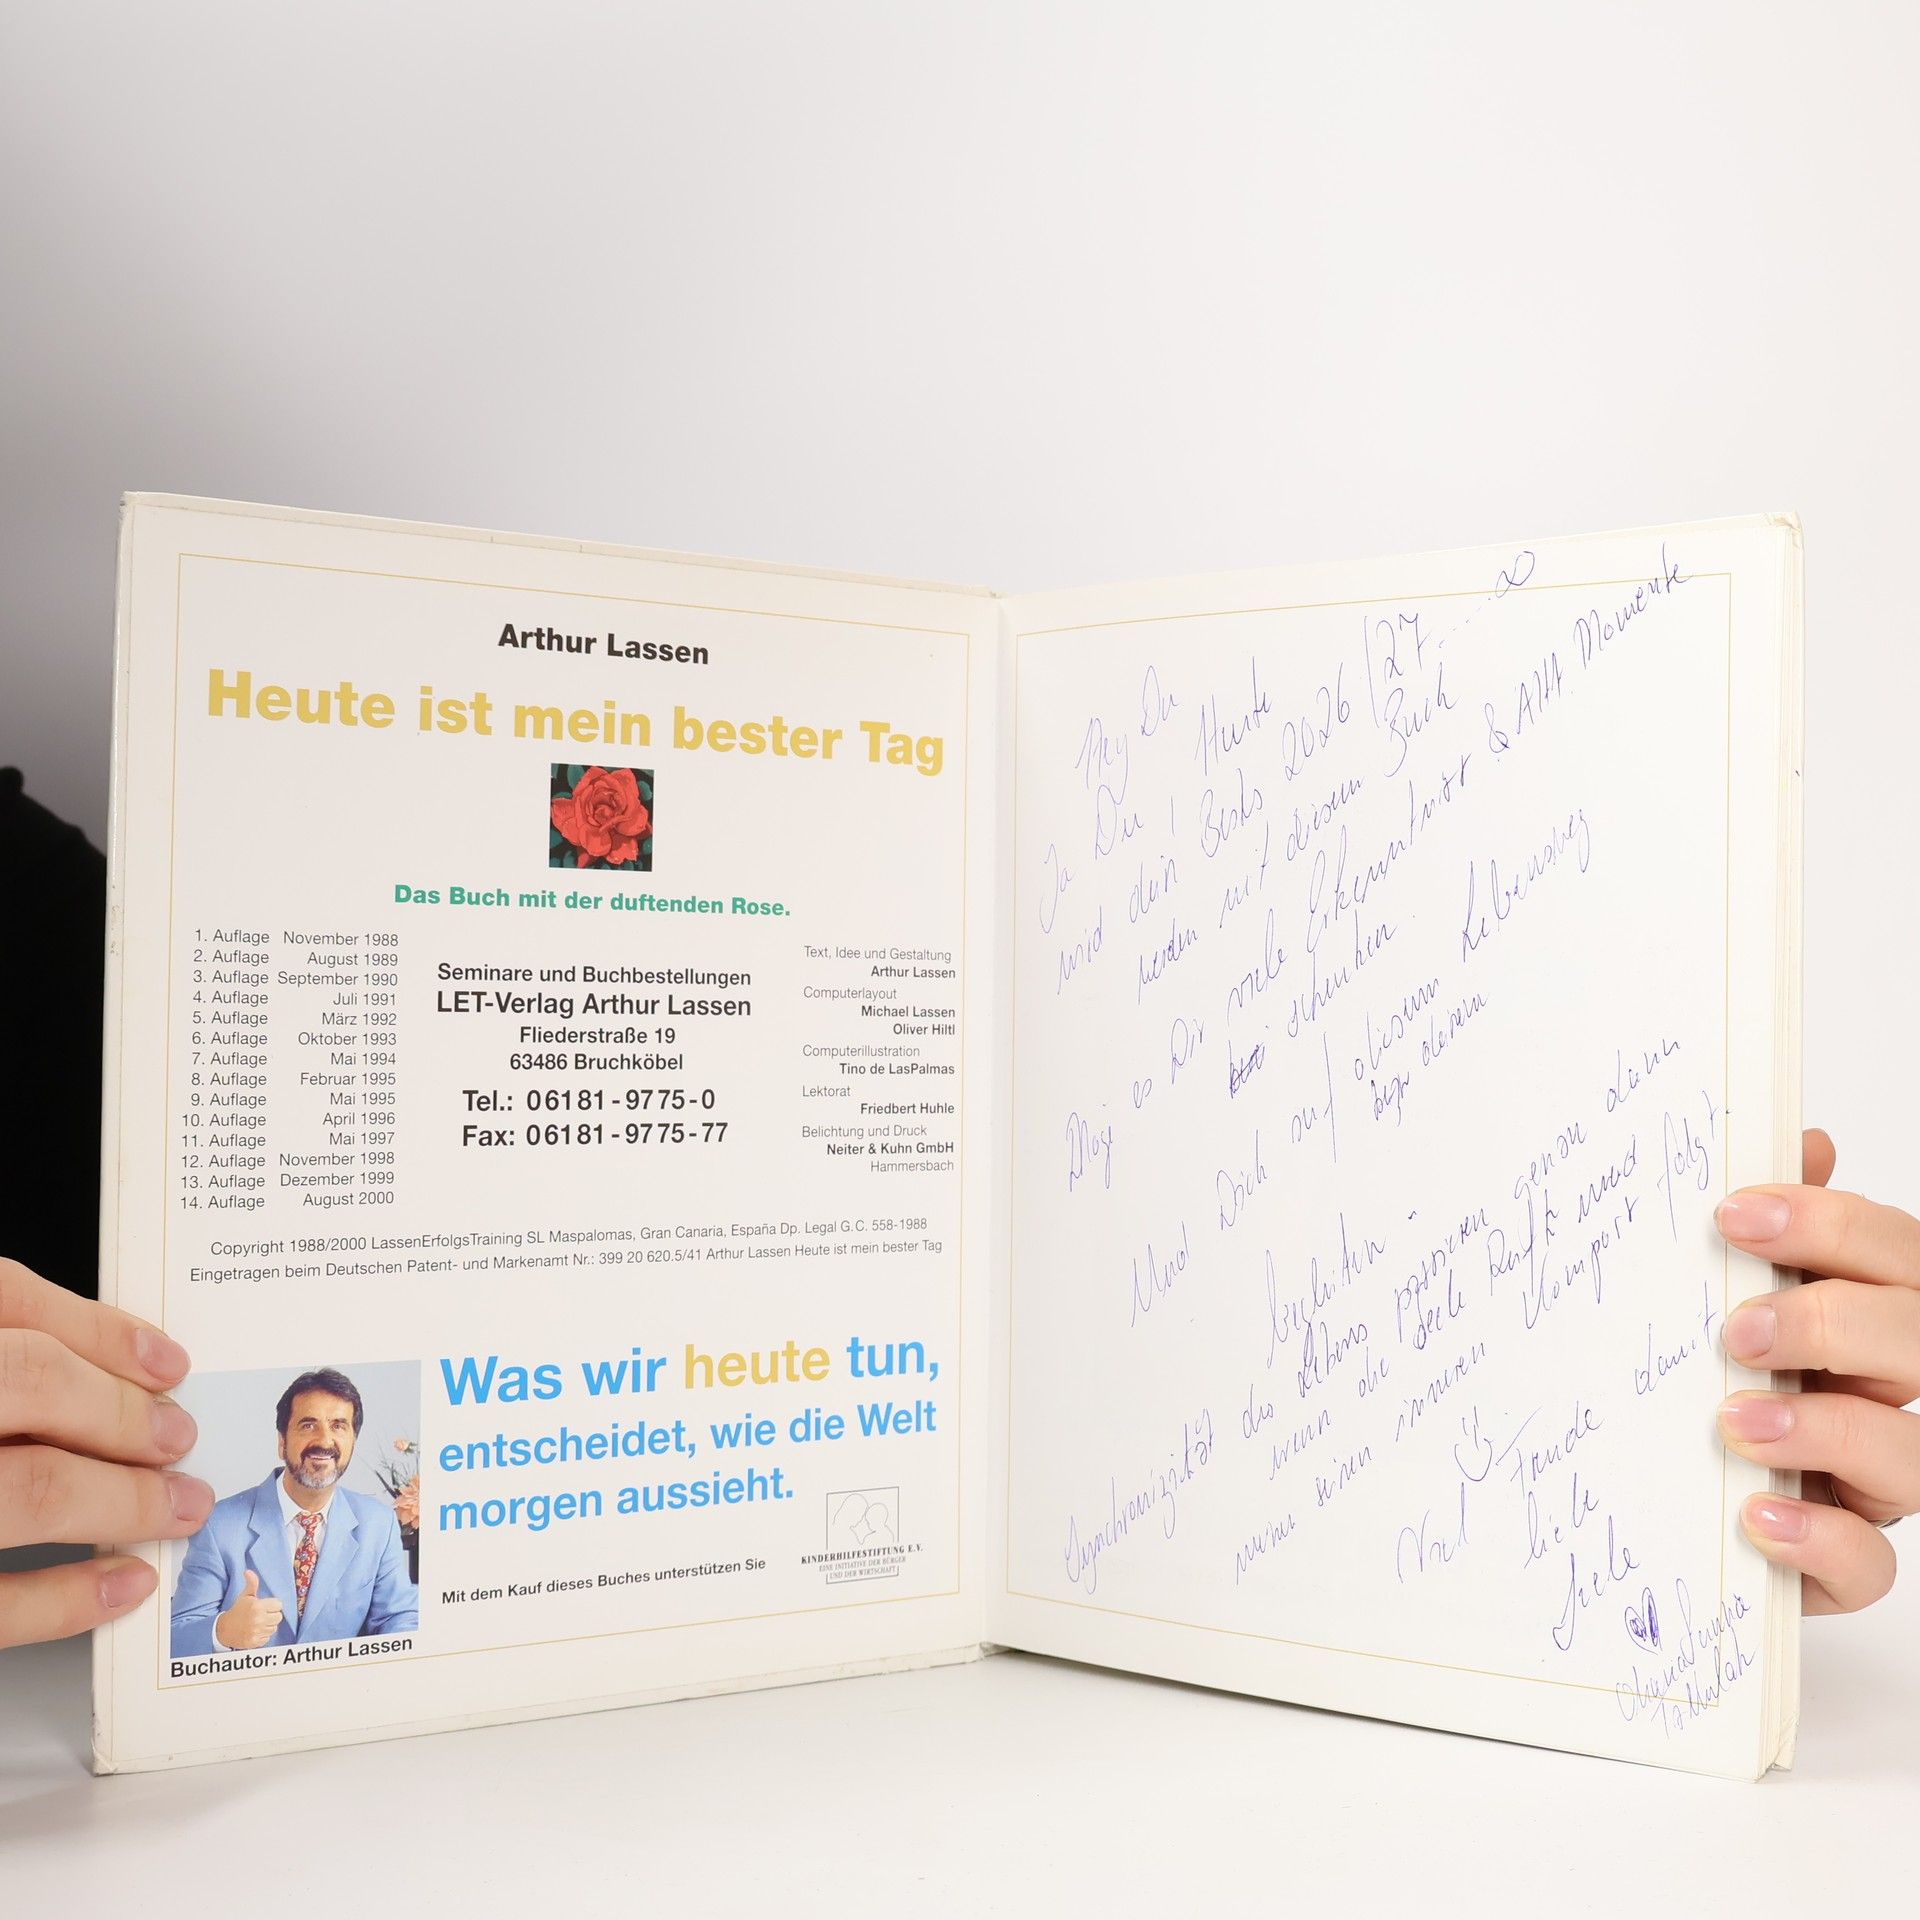 Arthur Lassen
Heute ist mein bester Tag
Das Buch mit der duftenden Rose.
1. Auflage November 1988
2. Auflage August 1989
3. Auflage September 1990
4. Auflage Juli 1991
5. Auflage März 1992
6. Auflage Oktober 1993
7. Auflage Mai 1994
8. Auflage Februar 1995
9. Auflage Mai 1995
10. Auflage April 1996
11. Auflage Mai 1997
12. Auflage November 1998
13. Auflage Dezember 1999
14. Auflage August 2000
Seminare und Buchbestellungen
LET-Verlag Arthur Lassen
Fliederstraße 19
63486 Bruchköbel
Tel.: 06181-9775-0
Fax: 06181-9775-77
Text, Idee und Gestaltung
Arthur Lassen
Computerlayout
Michael Lassen
Oliver Hiltl
Computerillustration
Tino de LasPalmas
Lektorat
Friedbert Huhle
Belichtung und Druck
Neiter & Kuhn GmbH
Hammersbach
Copyright 1988/2000 LassenErfolgsTraining SL Maspalomas, Gran Canaria, España Dp. Legal G.C. 558-1988
Eingetragen beim Deutschen Patent- und Markenamt Nr.: 399 20 620.5/41 Arthur Lassen Heute ist mein bester Tag
Was wir heute tun,
entscheidet, wie die Welt
morgen aussieht.
Mit dem Kauf dieses Buches unterstützen Sie
KINDERHILFESTIFTUNG E.V.
EINE INITIATIVE DER BÜRGER
UND DER WIRTSCHAFT
Buchautor: Arthur Lassen
Hey Du
Ja Du! Heute
wird dein Bestes 2026/27.....∞
werden mit diesem Buch
Möge es Dir viele Erkenntnisse & AHA Momente
schenken.
Und Dich auf diesem Lebensweg
bzgr deinem
begleiten.
Synchronizität des Lebens passieren genau dann
wenn die Seele Ruft und
man seinen inneren Kompass folgt.
Viel Freude damit
liebe
Seele